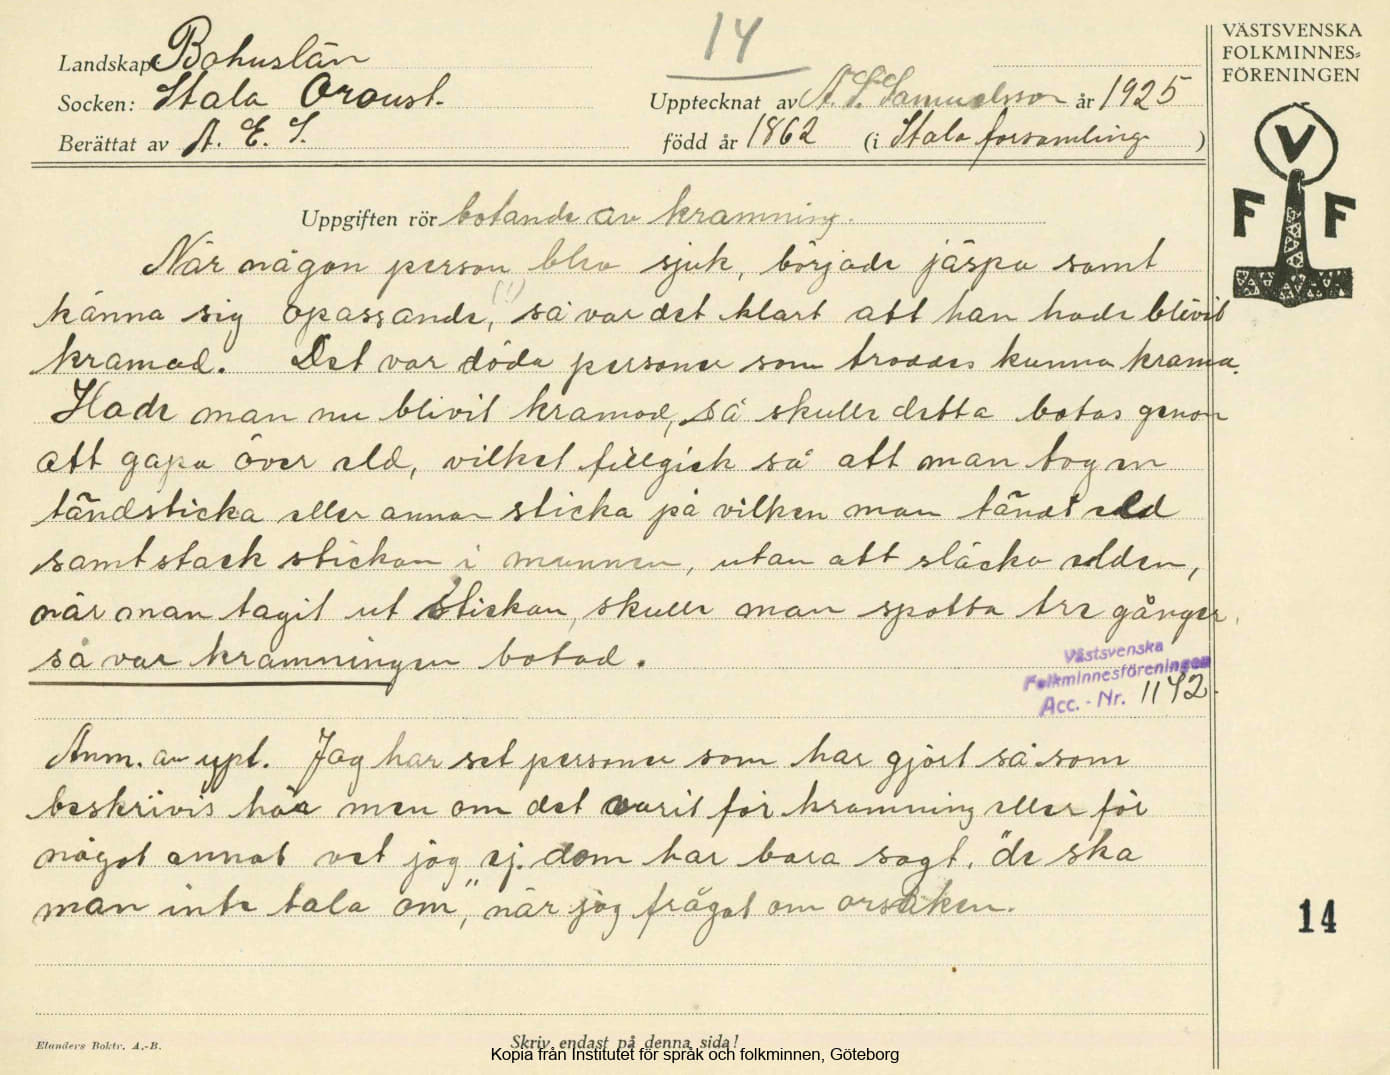 14
VÄSTSVENSKA
FOLKMINNES=
FÖRENINGEN
Landskap: Bohuslän
Socken: Stala Oroust.
Upptecknat av A. E. Samuelsson år 1925
Berättat av A. E. S.
född år 1862 (i Stala forsamling )
V
F F
Uppgiften rör botande av kramning.
När någon person blev sjuk, började jäspa samt
känna sig opassande, (!) så var det klart att han hade blivit
kramad. Det var döda personer som troddes kunna krama.
Hade man nu blivit kramad, så skulle detta botas genom
att gapa över eld, vilket tillgick så att man tog en
tändsticka eller annan sticka på vilken man tänt eld
samt stack stickan i munnen, utan att släcka elden,
när man tagit ut stickan, skulle man spotta tre gånger,
så var kramningen botad.
Västsvenska
Folkminnesföreningen
Acc. - Nr. 1142.
Anm. av uppt. Jag har set personer som har gjort så som
beskrivis här men om det varit för kramning eller för
något annat vet jag ej. dom har bara sagt. "de ska
man inte tala om", när jag frågat om orsaken.
14
Elanders Boktr. A.-B.
Skriv endast på denna sida!
Kopia från Institutet för språk och folkminnen, Göteborg